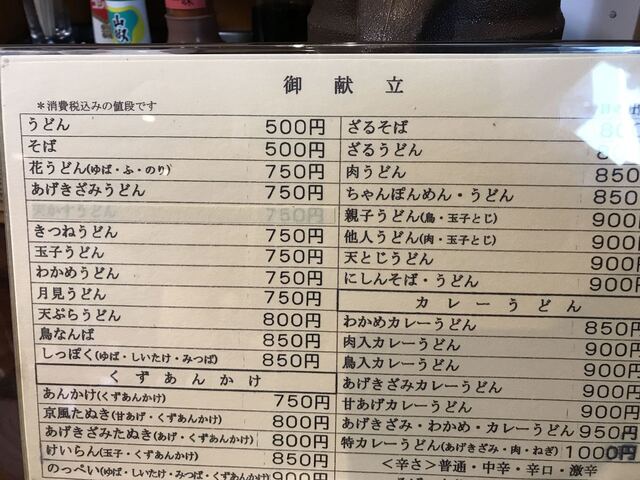 山椒
御献立
*消費税込みの値段です
うどん 500円
そば 500円
花うどん(ゆば・ふ・のり) 750円
あげきざみうどん 750円
750円
きつねうどん 750円
玉子うどん 750円
わかめうどん 750円
月見うどん 750円
天ぷらうどん 800円
鳥なんば 850円
しっぽく(ゆば・しいたけ・みつば) 850円
くずあんかけ
あんかけ(くずあんかけ) 750円
京風たぬき(甘あげ・くずあんかけ) 800円
あげきざみたぬき(あげ・くずあんかけ) 800円
けいらん(玉子・くずあんかけ) 850円
のっぺい(ゆば・しいたけ・みつば・くずあんかけ) 900円
ざるそば
ざるうどん
肉うどん 850
ちゃんぽんめん・うどん 850
親子うどん(鳥・玉子とじ) 900円
他人うどん(肉・玉子とじ) 900円
天とじうどん 900円
にしんそば・うどん 900円
カレーうどん
わかめカレーうどん 850円
肉入カレーうどん 900円
鳥入カレーうどん 900円
あげきざみカレーうどん 900円
甘あげカレーうどん 900円
あげきざみ・わかめ・カレーうどん 950円
特カレーうどん(あげきざみ・肉・ねぎ) 1000円
<辛さ>普通・中辛・辛口・激辛